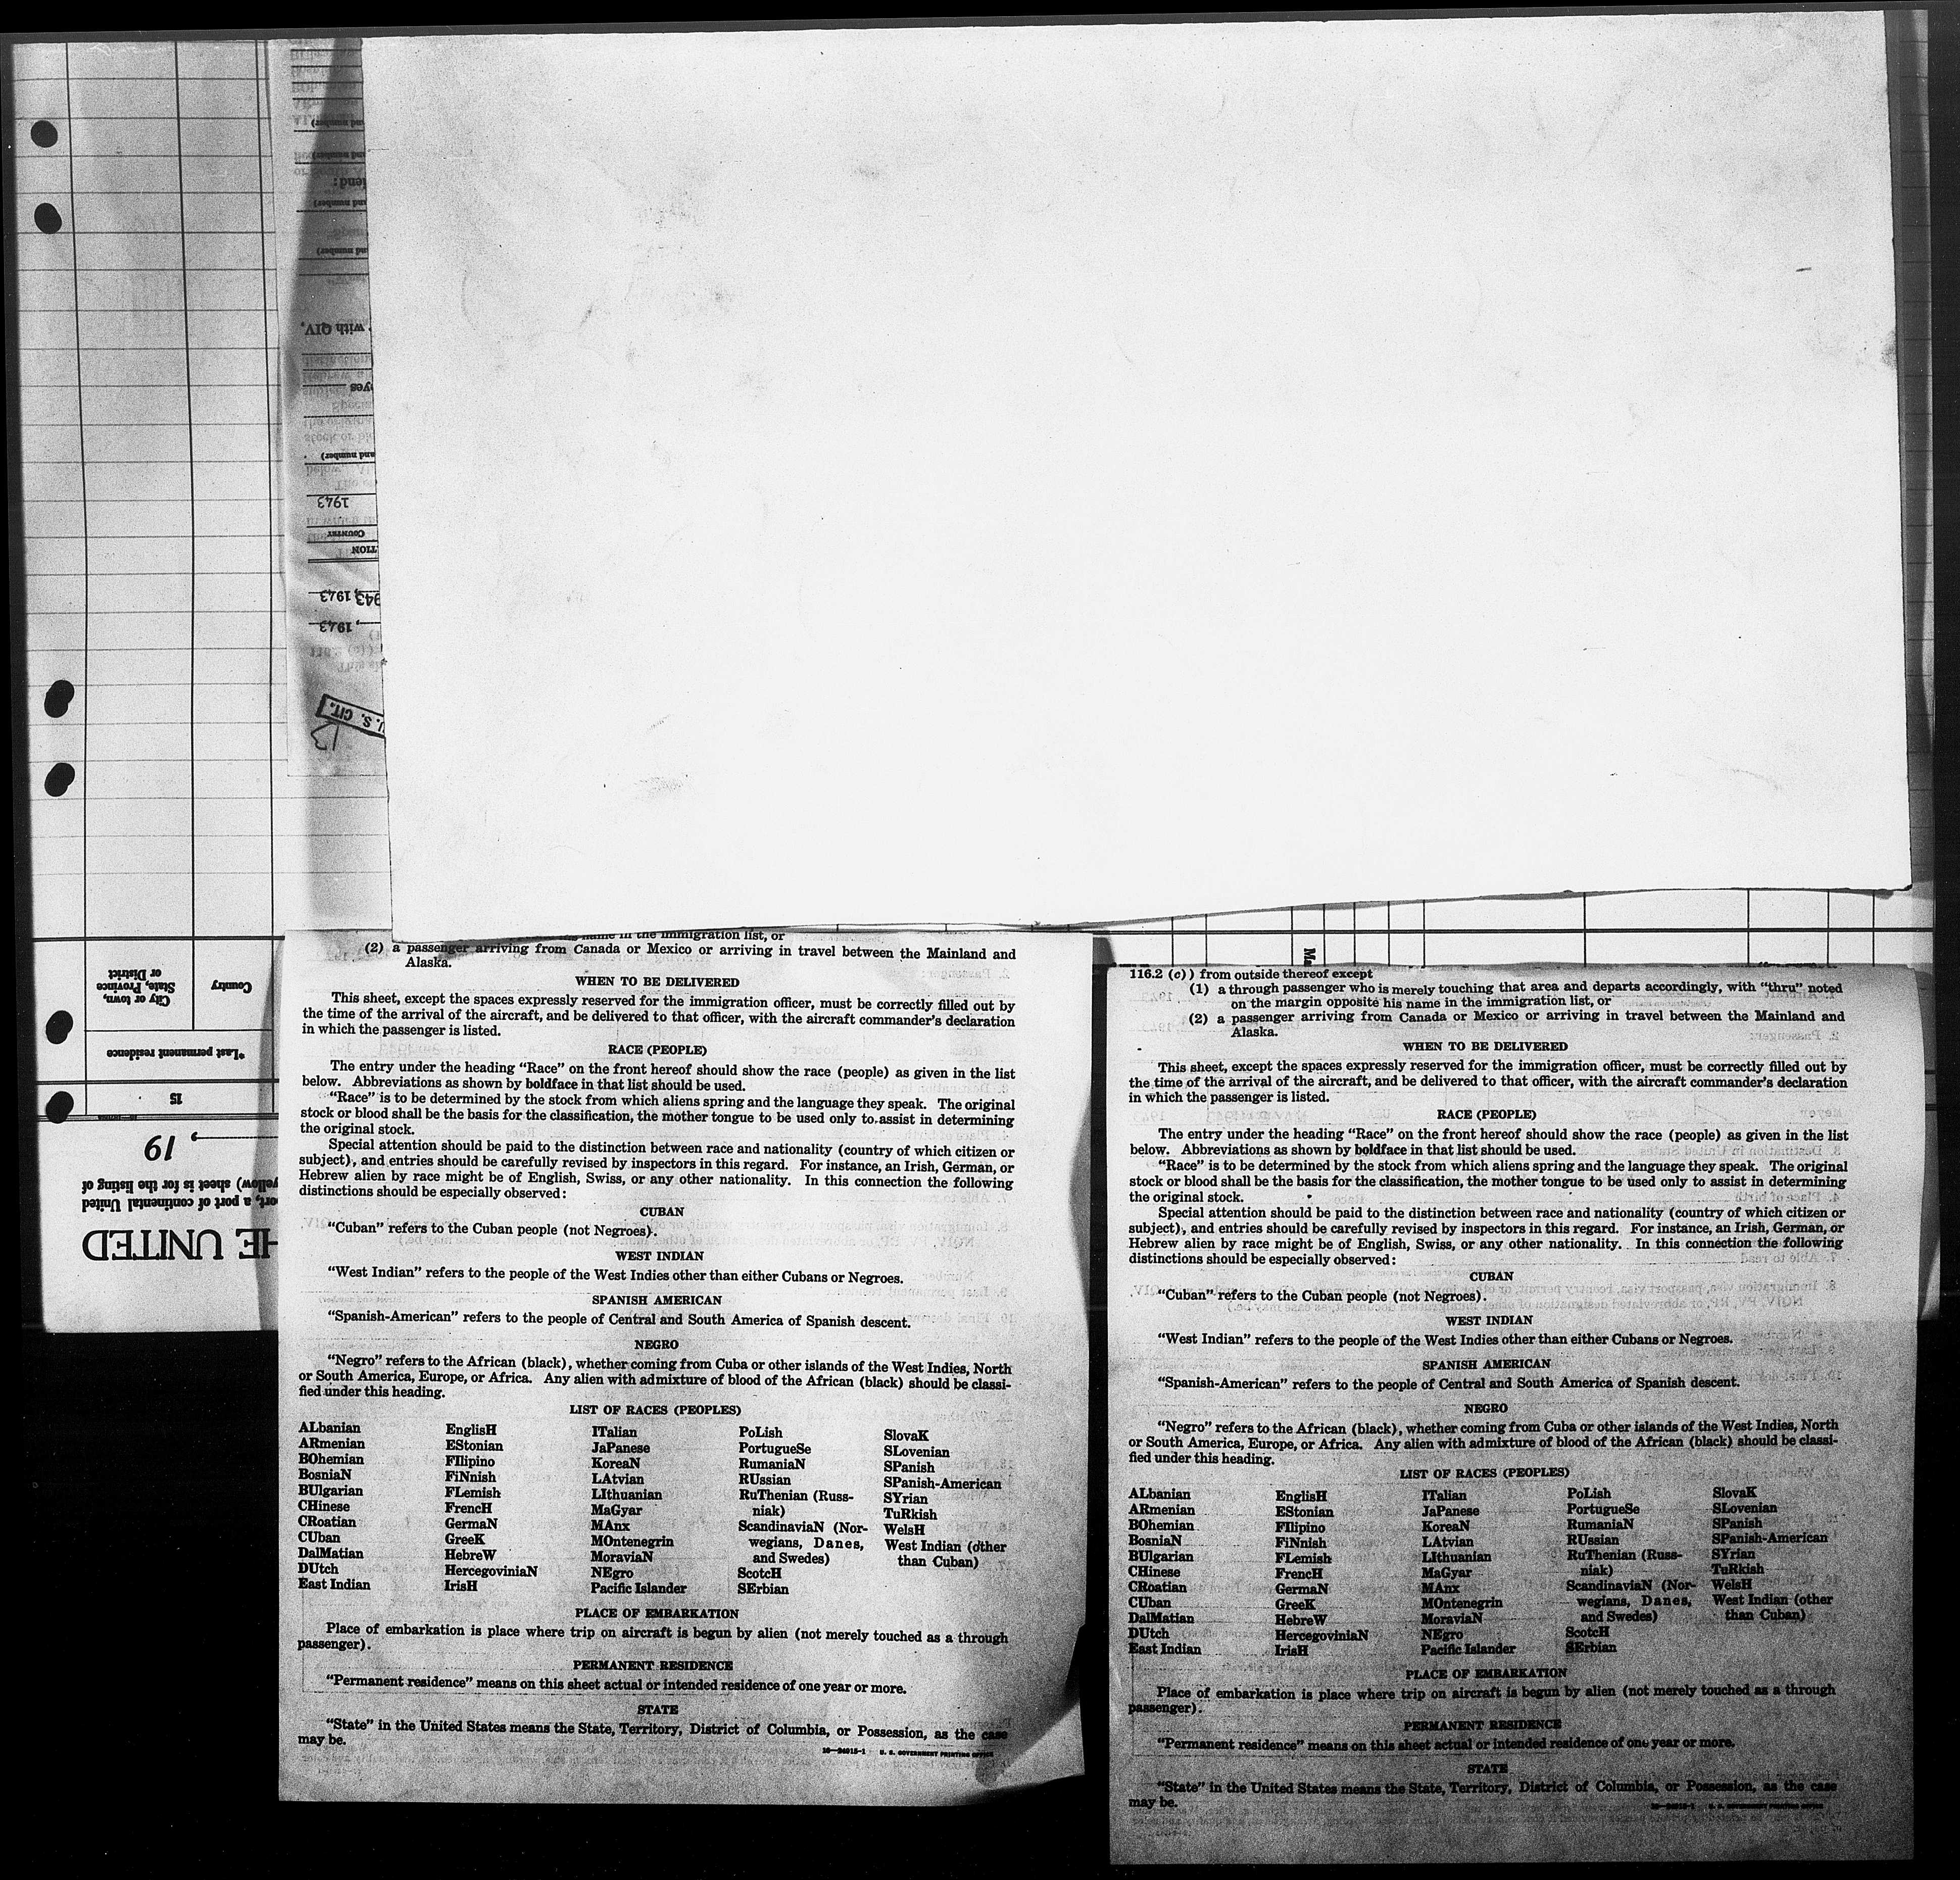 and number)
and number)
iend:
and number)
and number)
with QIV,
eyes
and number)
1943
COUNTRY
TION
1943
943
, 1943
U. S. CIT.
City or town,
State, Province
or District
Country
*Last permanent residence
15
, 19
yellow) sheet is for the listing of
ort, a port of continental United
HE UNITED
name in the immigration list, or
(2) a passenger arriving from Canada or Mexico or arriving in travel between the Mainland and
Alaska.
WHEN TO BE DELIVERED
This sheet, except the spaces expressly reserved for the immigration officer, must be correctly filled out by
the time of the arrival of the aircraft, and be delivered to that officer, with the aircraft commander's declaration
in which the passenger is listed.
RACE (PEOPLE)
The entry under the heading "Race" on the front hereof should show the race (people) as given in the list
below. Abbreviations as shown by boldface in that list should be used.
"Race" is to be determined by the stock from which aliens spring and the language they speak. The original
stock or blood shall be the basis for the classification, the mother tongue to be used only to assist in determining
the original stock.
Special attention should be paid to the distinction between race and nationality (country of which citizen or
subject), and entries should be carefully revised by inspectors in this regard. For instance, an Irish, German, or
Hebrew alien by race might be of English, Swiss, or any other nationality. In this connection the following
distinctions should be especially observed:
CUBAN
"Cuban" refers to the Cuban people (not Negroes).
WEST INDIAN
"West Indian" refers to the people of the West Indies other than either Cubans or Negroes.
SPANISH AMERICAN
"Spanish-American" refers to the people of Central and South America of Spanish descent.
NEGRO
"Negro" refers to the African (black), whether coming from Cuba or other islands of the West Indies, North
or South America, Europe, or Africa. Any alien with admixture of blood of the African (black) should be classi-
fied under this heading.
LIST OF RACES (PEOPLES)
ALbanian
ARmenian
BOhemian
BosniaN
BUlgarian
CHinese
CRoatian
CUban
DalMatian
DUtch
East Indian
EnglisH
EStonian
FIlipino
FiNnish
FLemish
FrencH
GermaN
GreeK
HebreW
HercegoviniaN
IrisH
ITalian
JaPanese
KoreaN
LAtvian
LIthuanian
MaGyar
MAnx
MOntenegrin
MoraviaN
NEgro
Pacific Islander
PoLish
PortugueSe
RumaniaN
RUssian
RuThenian (Russ-
niak)
ScandinaviaN (Nor-
wegians, Danes,
and Swedes)
ScotcH
SErbian
SlovaK
SLovenian
SPanish
SPanish-American
SYrian
TuRkish
WelsH
West Indian (other
than Cuban)
PLACE OF EMBARKATION
Place of embarkation is place where trip on aircraft is begun by alien (not merely touched as a through
passenger).
PERMANENT RESIDENCE
"Permanent residence" means on this sheet actual or intended residence of one year or more.
STATE
"State" in the United States means the State, Territory, District of Columbia, or Possession, as the case
may be.
16—24015-1 U. S. GOVERNMENT PRINTING OFFICE
Ma
116.2 (c)) from outside thereof except
(1) a through passenger who is merely touching that area and departs accordingly, with "thru" noted
on the margin opposite his name in the immigration list, or
(2) a passenger arriving from Canada or Mexico or arriving in travel between the Mainland and
Alaska.
WHEN TO BE DELIVERED
This sheet, except the spaces expressly reserved for the immigration officer, must be correctly filled out by
the time of the arrival of the aircraft, and be delivered to that officer, with the aircraft commander's declaration
in which the passenger is listed.
RACE (PEOPLE)
The entry under the heading "Race" on the front hereof should show the race (people) as given in the list
below. Abbreviations as shown by boldface in that list should be used.
"Race" is to be determined by the stock from which aliens spring and the language they speak. The original
stock or blood shall be the basis for the classification, the mother tongue to be used only to assist in determining
the original stock.
Special attention should be paid to the distinction between race and nationality (country of which citizen or
subject), and entries should be carefully revised by inspectors in this regard. For instance, an Irish, German, or
Hebrew alien by race might be of English, Swiss, or any other nationality. In this connection the following
distinctions should be especially observed:
CUBAN
"Cuban" refers to the Cuban people (not Negroes).
WEST INDIAN
"West Indian" refers to the people of the West Indies other than either Cubans or Negroes.
SPANISH AMERICAN
"Spanish-American" refers to the people of Central and South America of Spanish descent.
NEGRO
"Negro" refers to the African (black), whether coming from Cuba or other islands of the West Indies, North
or South America, Europe, or Africa. Any alien with admixture of blood of the African (black) should be classi-
fied under this heading.
LIST OF RACES (PEOPLES)
ALbanian
ARmenian
BOhemian
BosniaN
BUlgarian
CHinese
CRoatian
CUban
DalMatian
DUtch
East Indian
EnglisH
EStonian
FIlipino
FiNnish
FLemish
FrencH
GermaN
GreeK
HebreW
HercegoviniaN
IrisH
ITalian
JaPanese
KoreaN
LAtvian
LIthuanian
MaGyar
MAnx
MOntenegrin
MoraviaN
NEgro
Pacific Islander
PoLish
PortugueSe
RumaniaN
RUssian
RuThenian (Russ-
niak)
ScandinaviaN (Nor-
wegians, Danes,
and Swedes)
ScotcH
SErbian
SlovaK
SLovenian
SPanish
SPanish-American
SYrian
TuRkish
WelsH
West Indian (other
than Cuban)
PLACE OF EMBARKATION
Place of embarkation is place where trip on aircraft is begun by alien (not merely touched as a through
passenger).
PERMANENT RESIDENCE
"Permanent residence" means on this sheet actual or intended residence of one year or more.
STATE
"State" in the United States means the State, Territory, District of Columbia, or Possession, as the case
may be.
16—24015-1 U. S. GOVERNMENT PRINTING OFFICE